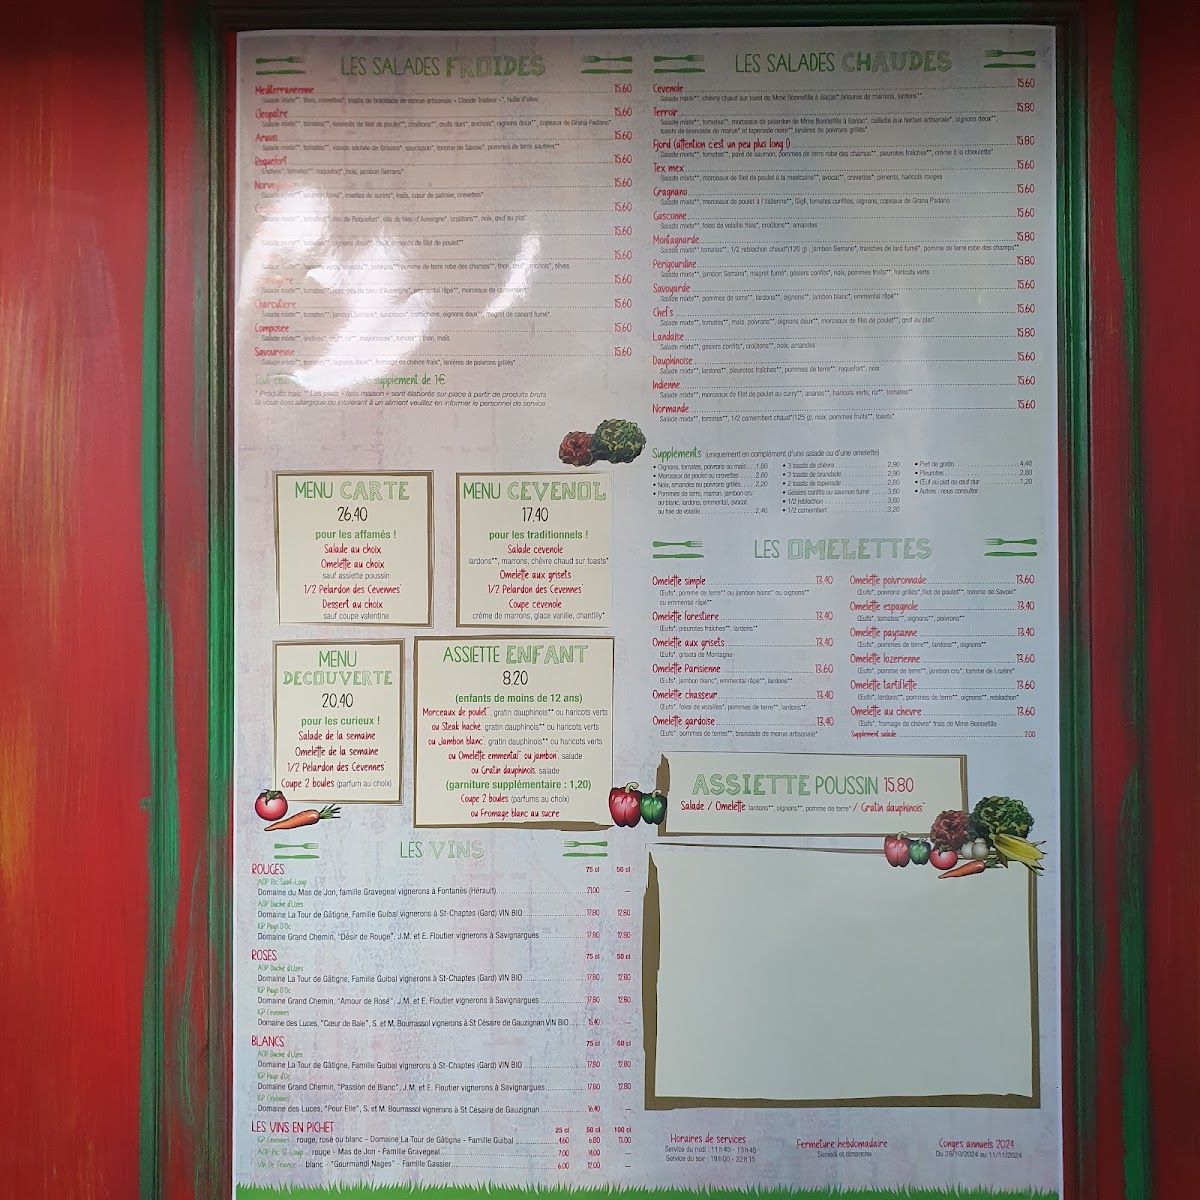 LES SALADES FROIDES
Mediterraneenne 15.60
Salade mixte**, thon, crevettes*, toasts de brandade de morue artisanale « Claude Traiteur »*, huile d'olive
Cleopatre 15.60
Salade mixte**, tomates**, émincés de filet de poulet**, croûtons**, œufs durs*, anchois*, oignons doux**, copeaux de Grana Padano*
Aravis 15.60
Salade mixte**, tomates**, viande séchée de Grisons*, saucisson*, tomme de Savoie*, pommes de terre sautées**
Roquefort 15.60
Endives*, tomates**, roquefort*, noix, jambon Serrano*
15.60
miettes de surimi*, maïs, cœur de palmier, crevettes*
15.60
dés de Roquefort*, dés de bleu d'Auvergne*, croûtons**, noix, œuf au plat*
15.60
Salade mixte**, tomates**, oignons doux**, émincés de filet de poulet**
15.60
poivrons**, pomme de terre robe des champs**, thon, olives
15.60
noix, dés de bleu d'Auvergne*, emmental râpé**, morceaux de
Charcutiere 15.60
Salade mixte**, tomates**, jambon Serrano*, saucisson*, cornichons, oignons doux**, magret de canard fumé*
Composee 15.60
Salade mixte**, endives*, mayonnaise*, tomate**, thon, maïs
Savoureuse 15.60
oignons doux**, fromage de chèvre frais*, lanières de poivrons grillés*
supplément de 1€
* Produits frais ** Les plats « faits maison » sont élaborés sur place à partir de produits bruts
Si vous êtes allergique ou intolérant à un aliment veuillez en informer le personnel de service.
LES SALADES CHAUDES
Cevenole 15.60
Salade mixte**, chèvre chaud sur toast de Mme Bonnefille à Barjac*, brisures de marrons, lardons**.
Terroir 15.80
Salade mixte**, tomates**, morceaux de pélardon de Mme Bonnefille à Barjac*, caillette aux herbes artisanale*, oignons doux**,
toasts de brandade de morue* et tapenade noire**, lanières de poivrons grillés*
Fjord (attention c'est un peu plus long !) 15.80
Salade mixte**, tomates**, pavé de saumon, pommes de terre robe des champs**, pleurotes fraîches**, crème à la ciboulette*
Tex mex 15.60
Salade mixte**, morceaux de filet de poulet à la mexicaine**, avocat**, crevettes*, piments, haricots rouges
Gragnano 15.60
Salade mixte**, morceaux de poulet à l'italienne**, Gigli, tomates confites, oignons, copeaux de Grana Padano
Gasconne 15.60
Salade mixte**, foies de volaille frais*, croûtons**, amandes
Montagnarde 15.80
Salade mixte**, tomates**, 1/2 reblochon chaud*(120 g), jambon Serrano*, tranches de lard fumé*, pomme de terre robe des champs**
Périgourdine 15.80
Salade mixte**, jambon Serrano*, magret fumé*, gésiers confits*, noix, pommes fruits**, haricots verts
Savoyarde 15.60
Salade mixte**, pommes de terre**, lardons**, oignons**, jambon blanc*, emmental râpé**
Chef's 15.60
Salade mixte**, tomates**, maïs, poivrons**, oignons doux**, morceaux de filet de poulet**, œuf au plat*
Landaise 15.80
Salade mixte**, gésiers confits*, croûtons**, noix, amandes
Dauphinoise 15.60
Salade mixte**, lardons**, pleurotes fraîches**, pommes de terre**, roquefort*, noix
Indienne 15.60
Salade mixte**, morceaux de filet de poulet au curry**, ananas**, haricots verts, riz**, tomates**
Normande 15.60
Salade mixte**, tomates**, 1/2 camembert chaud*(125 g), noix, pommes fruits**, toasts*
Suppléments (uniquement en complément d'une salade ou d'une omelette)
• Oignons, tomates, poivrons ou maïs 1,80
• Morceaux de poulet ou crevettes 2,80
• Noix, amandes ou poivrons grillés 2,20
• Pommes de terre, marron, jambon cru
ou blanc, lardons, emmental, avocat
ou foie de volaille 2,40
• 3 toasts de chèvre 2,90
• 3 toasts de brandade 2,90
• 2 toasts de tapenade 2,80
• Gésiers confits ou saumon fumé 3,60
• 1/2 reblochon 3,60
• 1/2 camembert 3,20
• Part de gratin 4,40
• Pleurotes 2,80
• Œuf au plat ou œuf dur 1,20
• Autres : nous consulter
MENU CARTE
26.40
pour les affamés !
Salade au choix
Omelette au choix
sauf assiette poussin
1/2 Pelardon des Cevennes*
Dessert au choix
sauf coupe valentine
MENU CEVENOL
17.40
pour les traditionnels !
Salade cevenole
lardons**, marrons, chèvre chaud sur toasts*
Omelette aux grisets
1/2 Pelardon des Cevennes*
Coupe cevenole
crème de marrons, glace vanille, chantilly*
MENU
DECOUVERTE
20.40
pour les curieux !
Salade de la semaine
Omelette de la semaine
1/2 Pelardon des Cevennes*
Coupe 2 boules (parfum au choix)
ASSIETTE ENFANT
8.20
(enfants de moins de 12 ans)
Morceaux de poulet**, gratin dauphinois** ou haricots verts
ou Steak haché*, gratin dauphinois** ou haricots verts
ou Jambon blanc*, gratin dauphinois** ou haricots verts
ou Omelette emmental** ou jambon*, salade
ou Gratin dauphinois, salade
(garniture supplémentaire : 1,20)
Coupe 2 boules (parfums au choix)
ou Fromage blanc au sucre
LES OMELETTES
Omelette simple 13.40
Œufs*, pomme de terre** ou jambon blanc* ou oignons**
ou emmental râpé**
Omelette forestiere 13.40
Œufs*, pleurotes fraîches**, lardons**
Omelette aux grisets 13.40
Œufs*, grisets de Montagne
Omelette Parisienne 13.60
Œufs*, jambon blanc*, emmental râpé**, lardons**
Omelette chasseur 13.40
Œufs*, foies de volailles*, pommes de terre**, lardons**
Omelette gardoise 13.40
Œufs*, pommes de terres**, brandade de morue artisanale*
Omelette poivronnade 13.60
Œufs*, poivrons grillés*, filet de poulet**, tomme de Savoie*
Omelette espagnole 13.40
Œufs*, tomates**, oignons**, poivrons**
Omelette paysanne 13.40
Œufs*, pommes de terre**, lardons**, oignons**
Omelette lozerienne 13.60
Œufs*, pomme de terre**, jambon cru*, tomme de Lozère*
Omelette tartiflette 13.60
Œufs*, lardons**, pommes de terre**, oignons**, reblochon*
Omelette au chevre 13.60
Œufs*, fromage de chèvre* frais de Mme Bonnefille
Supplement salade 2.00
ASSIETTE POUSSIN 15.80
Salade / Omelette lardons**, oignons**, pomme de terre* / Gratin dauphinois**
LES VINS
ROUGES 75 cl 50 cl
AOP Pic Saint-Loup
Domaine du Mas de Jon, famille Gravegeal vignerons à Fontanès (Hérault) 21.00 —
AOP Duché d'Uzes
Domaine La Tour de Gâtigne, Famille Guibal vignerons à St-Chaptes (Gard) VIN BIO 17.80 12.80
IGP Pays D'Oc
Domaine Grand Chemin, "Désir de Rouge", J.M. et E. Floutier vignerons à Savignargues 17.80 12.80
ROSÉS 75 cl 50 cl
AOP Duché d'Uzes
Domaine La Tour de Gâtigne, Famille Guibal vignerons à St-Chaptes (Gard) VIN BIO 17.80 12.80
IGP Pays D'Oc
Domaine Grand Chemin, "Amour de Rosé", J.M. et E. Floutier vignerons à Savignargues 17.80 12.80
IGP Cevennes
Domaine des Luces, "Cœur de Baie", S. et M. Bourrassol vignerons à St Césaire de Gauzignan VIN BIO 15.40 —
BLANCS 75 cl 50 cl
AOP Duché d'Uzes
Domaine La Tour de Gâtigne, Famille Guibal vignerons à St-Chaptes (Gard) VIN BIO 17.80 12.80
IGP Pays d'Oc
Domaine Grand Chemin, "Passion de Blanc", J.M. et E. Floutier vignerons à Savignargues 17.80 12.80
IGP Cevennes
Domaine des Luces, "Pour Elle", S. et M. Bourrassol vignerons à St Césaire de Gauzignan 16.40 —
LES VINS EN PICHET 25 cl 50 cl 100 cl
IGP Cevennes - rouge, rosé ou blanc - Domaine La Tour de Gâtigne - Famille Guibal 4.60 6.80 13.00
AOP Pic St-Loup - rouge - Mas de Jon - Famille Gravegeal 7.00 14.00 —
Vin De France - blanc - "Gourmandi Nages" - Famille Gassier 6.00 12.00 —
Horaires de services
Service du midi : 11h45 - 13h45
Service du soir : 19h00 - 22h15
Fermeture hebdomadaire
Samedi et dimanche
Congés annuels 2024
Du 26/10/2024 au 11/11/2024